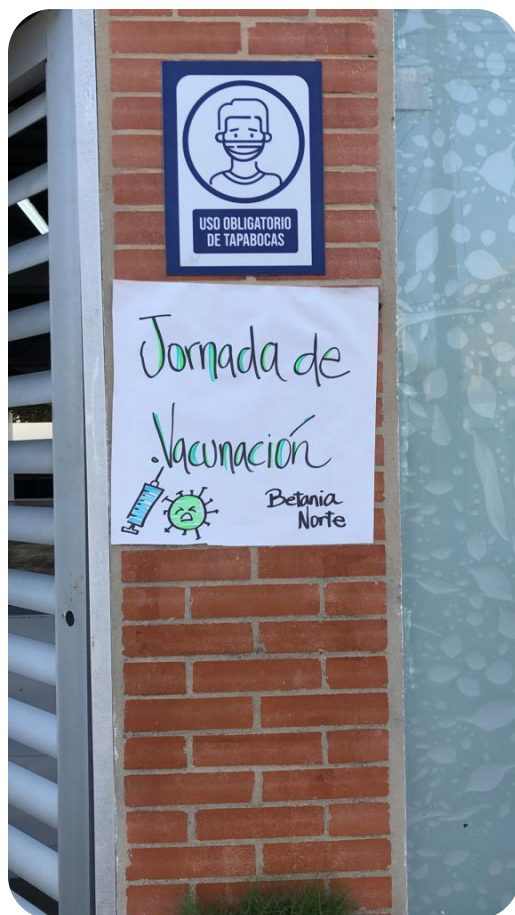 USO OBLIGATORIO
DE TAPABOCAS
Jornada de
Vacunación
Betania
Norte